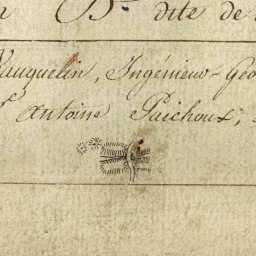 Dᵗᵉ dite de
Vauquelin, Ingénieur-Géo
Antoine Paichoux,